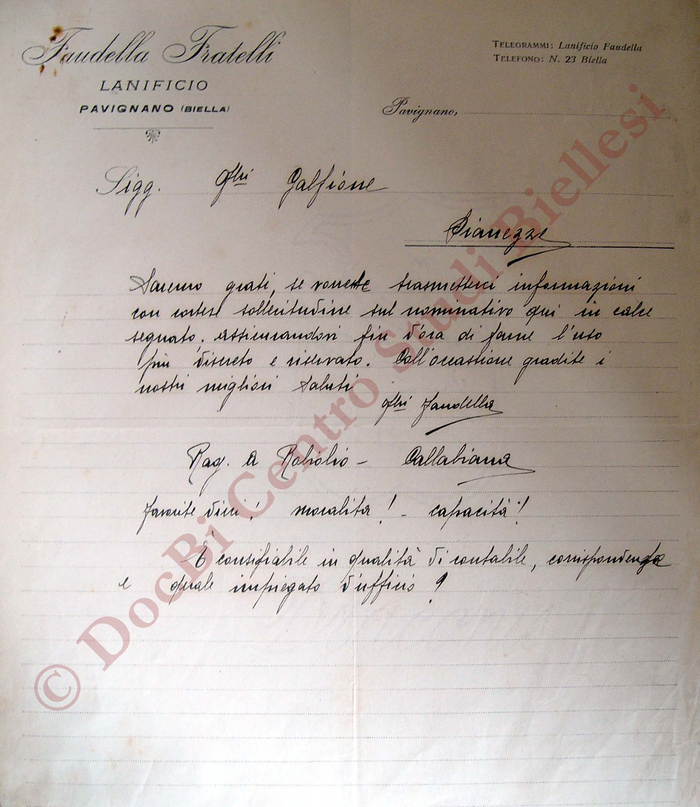 Faudella Fratelli
LANIFICIO
PAVIGNANO (BIELLA)
TELEGRAMMI: Lanificio Faudella
TELEFONO: N. 23 Biella
Pavignano,
Sigg. Flli Galfione
Pianezze
Saremo grati, se vorrete trasmetterci informazioni
con cortese sollecitudine sul nominativo qui in calce
segnato. Assicurandovi fin d'ora di farne l'uso
più discreto e riservato. Coll'occasione gradite i
nostri migliori saluti
Flli Faudella
Rag. A Robiolio - Callabiana
favorite dirci: moralità! - capacità!
È consigliabile in qualità di contabile, corrispondenza
e quale impiegato d'ufficio?
© DocBi Centro Studi Biellesi